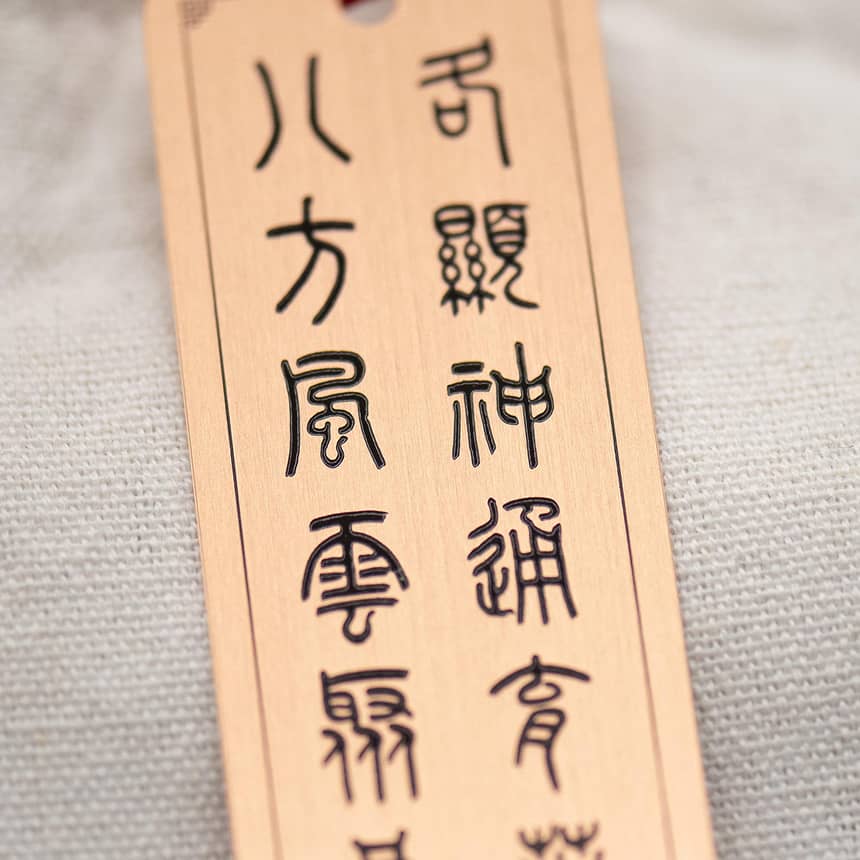 各顯神通有
八方風雲聚